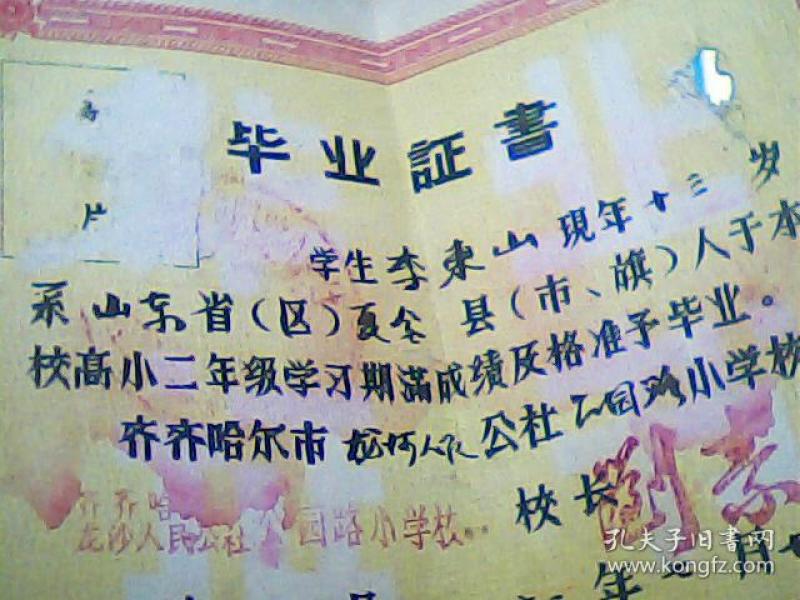 片
毕业証書
学生李東山現年十三岁
系山东省(区)夏 县(市、旗)人于本
校高小二年级学习期滿成绩及格准予毕业。
齐齐哈尔市 公社公园路小学校
齐齐哈
龙沙人民公社公园路小学校
校长劉
年 月
孔夫子旧书网
www.kongfz.com